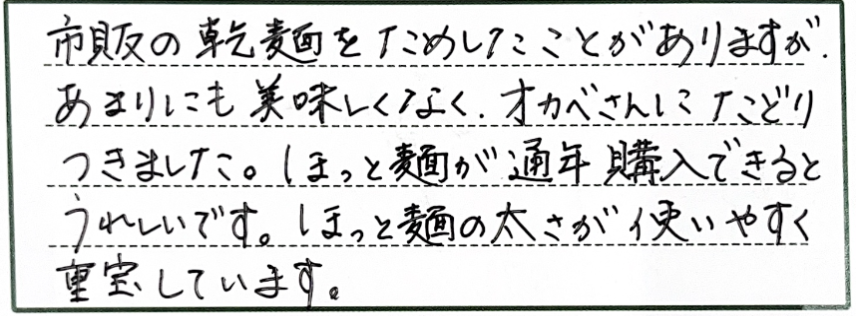 市販の乾麺をためしたことがありますが、
あまりにも美味しくなく、オカベさんにたどり
つきました。ほっと麺が通年購入できると
うれしいです。ほっと麺の太さが使いやすく
重宝しています。